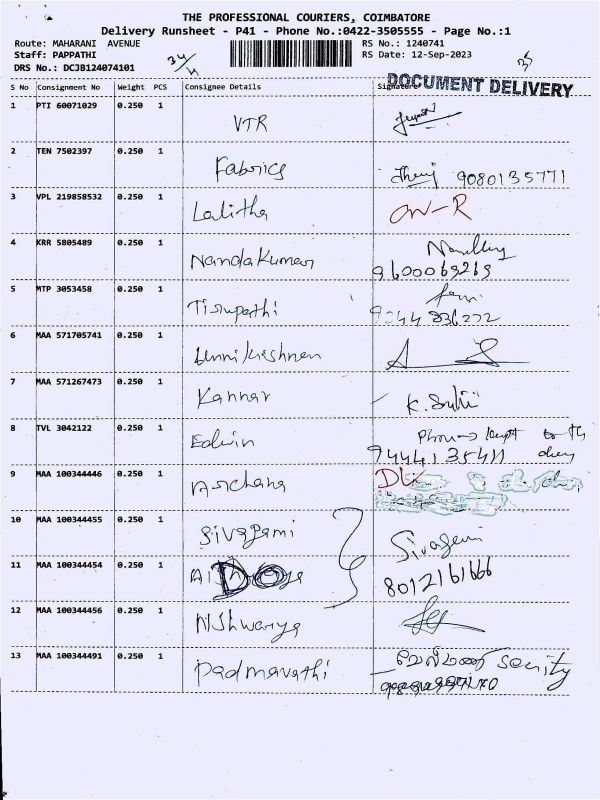 THE PROFESSIONAL COURIERS, COIMBATORE
Delivery Runsheet - P41 - Phone No.:0422-3505555 - Page No.:1
Route: MAHARANI AVENUE RS No.: 1240741
Staff: PAPPATHI RS Date: 12-Sep-2023
DRS No.: DCJB124074101
DOCUMENT DELIVERY
S No Consignment No Weight PCS Consignee Details
1 PTI 60071029 0.250 1 VTR
2 TEN 7502397 0.250 1 Fabrics 9080135771
3 VPL 219858532 0.250 1 Lalitha
4 KRR 5805489 0.250 1 Nanda Kumar
9600069269
5 MTP 3053458 0.250 1 Tirupathi
6 MAA 571705741 0.250 1 Unni Krishnan
7 MAA 571267473 0.250 1 Kannan
8 TVL 3042122 0.250 1 Edwin
9444135411
9 MAA 100344446 0.250 1 Archana
10 MAA 100344455 0.250 1 Sivagami Sivagami
11 MAA 100344454 0.250 1 8012161666
12 MAA 100344456 0.250 1 Aishwarya
13 MAA 100344491 0.250 1 Padmavathi